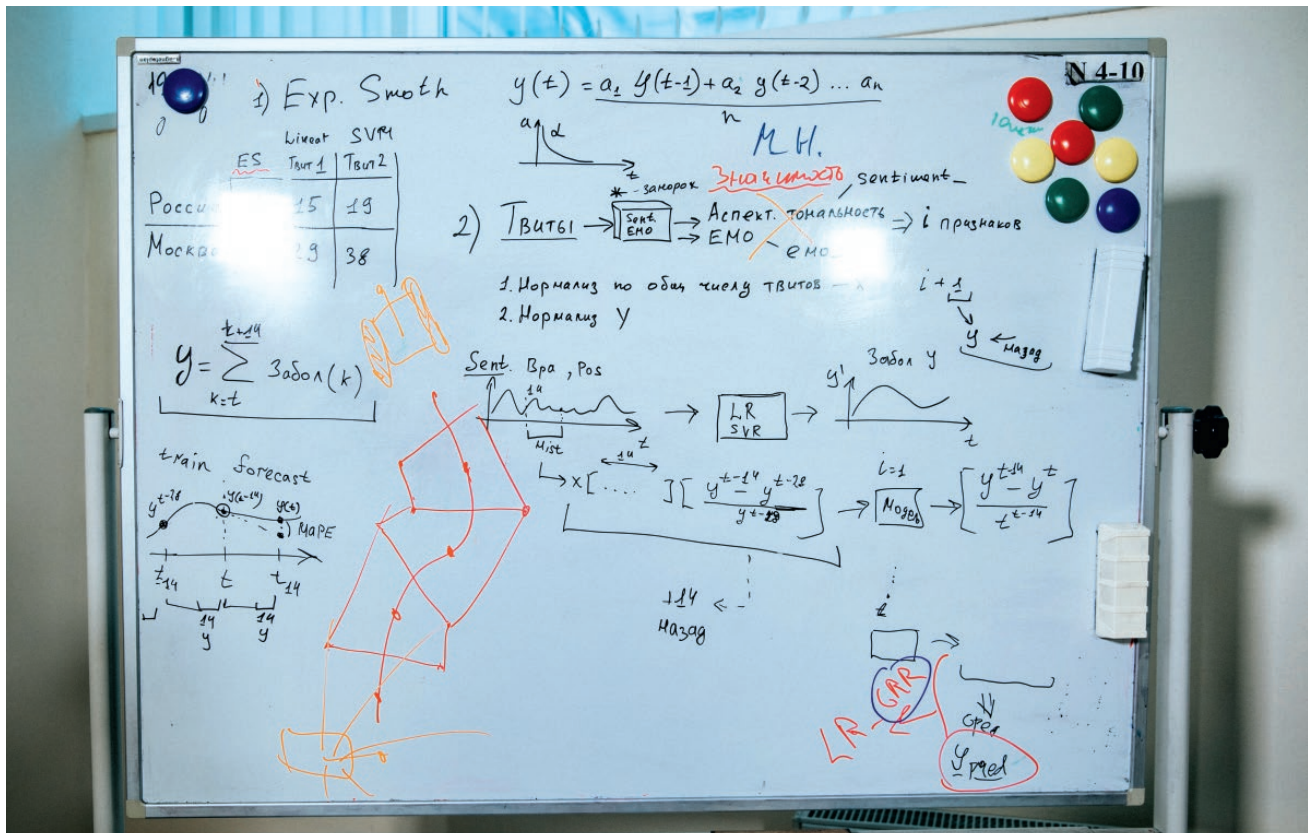 N 4-10
1) Exp. Smoth
y(t) = a₁ y(t-1) + a₂ y(t-2) ... aₙ
n
a
α
t
М Н.
Linear SVM
ES Твит 1 Твит 2
Россия 15 19
Москва 29 38
* - заморож
Значимость
sentiment_
2) Твиты → Sent. EMO → Аспект. тональность ⇒ i признаков
→ EMO
емо_
1. Нормализ по общ числу твитов - x
2. Нормализ y
i + 1
y ← назад
y = Σ Забол(k)
t+14
k=t
Sent. Вра, Pos
14
t
Hist
→ LR SVR →
Забол y
y'
t
train forecast
y^{t-28} y(t-14) y(t)
MAPE
t-14 t t14
14 14
y y
14
x [ .... ] [ (y^{t-14} - y^{t-28}) / y^{t-28} ] → Модель → [ (y^{t-14} - y^t) / t^{t-14} ]
i=1
+14 ←
назад
LR
GRR
сред
y пред